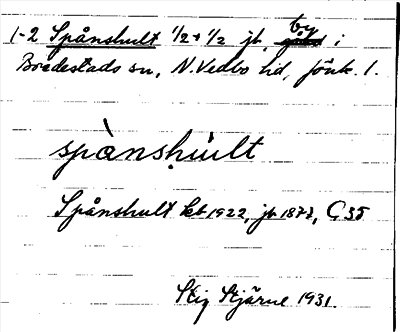 1-2 Spånshult 1/2+1/2 jb, by i
Bredestads sn, N. Vedbo hd, Jönk. l.
spànshu̇lt
Spånshult kb 1922, jb 1877, C 35
Stig Stjärne 1931.